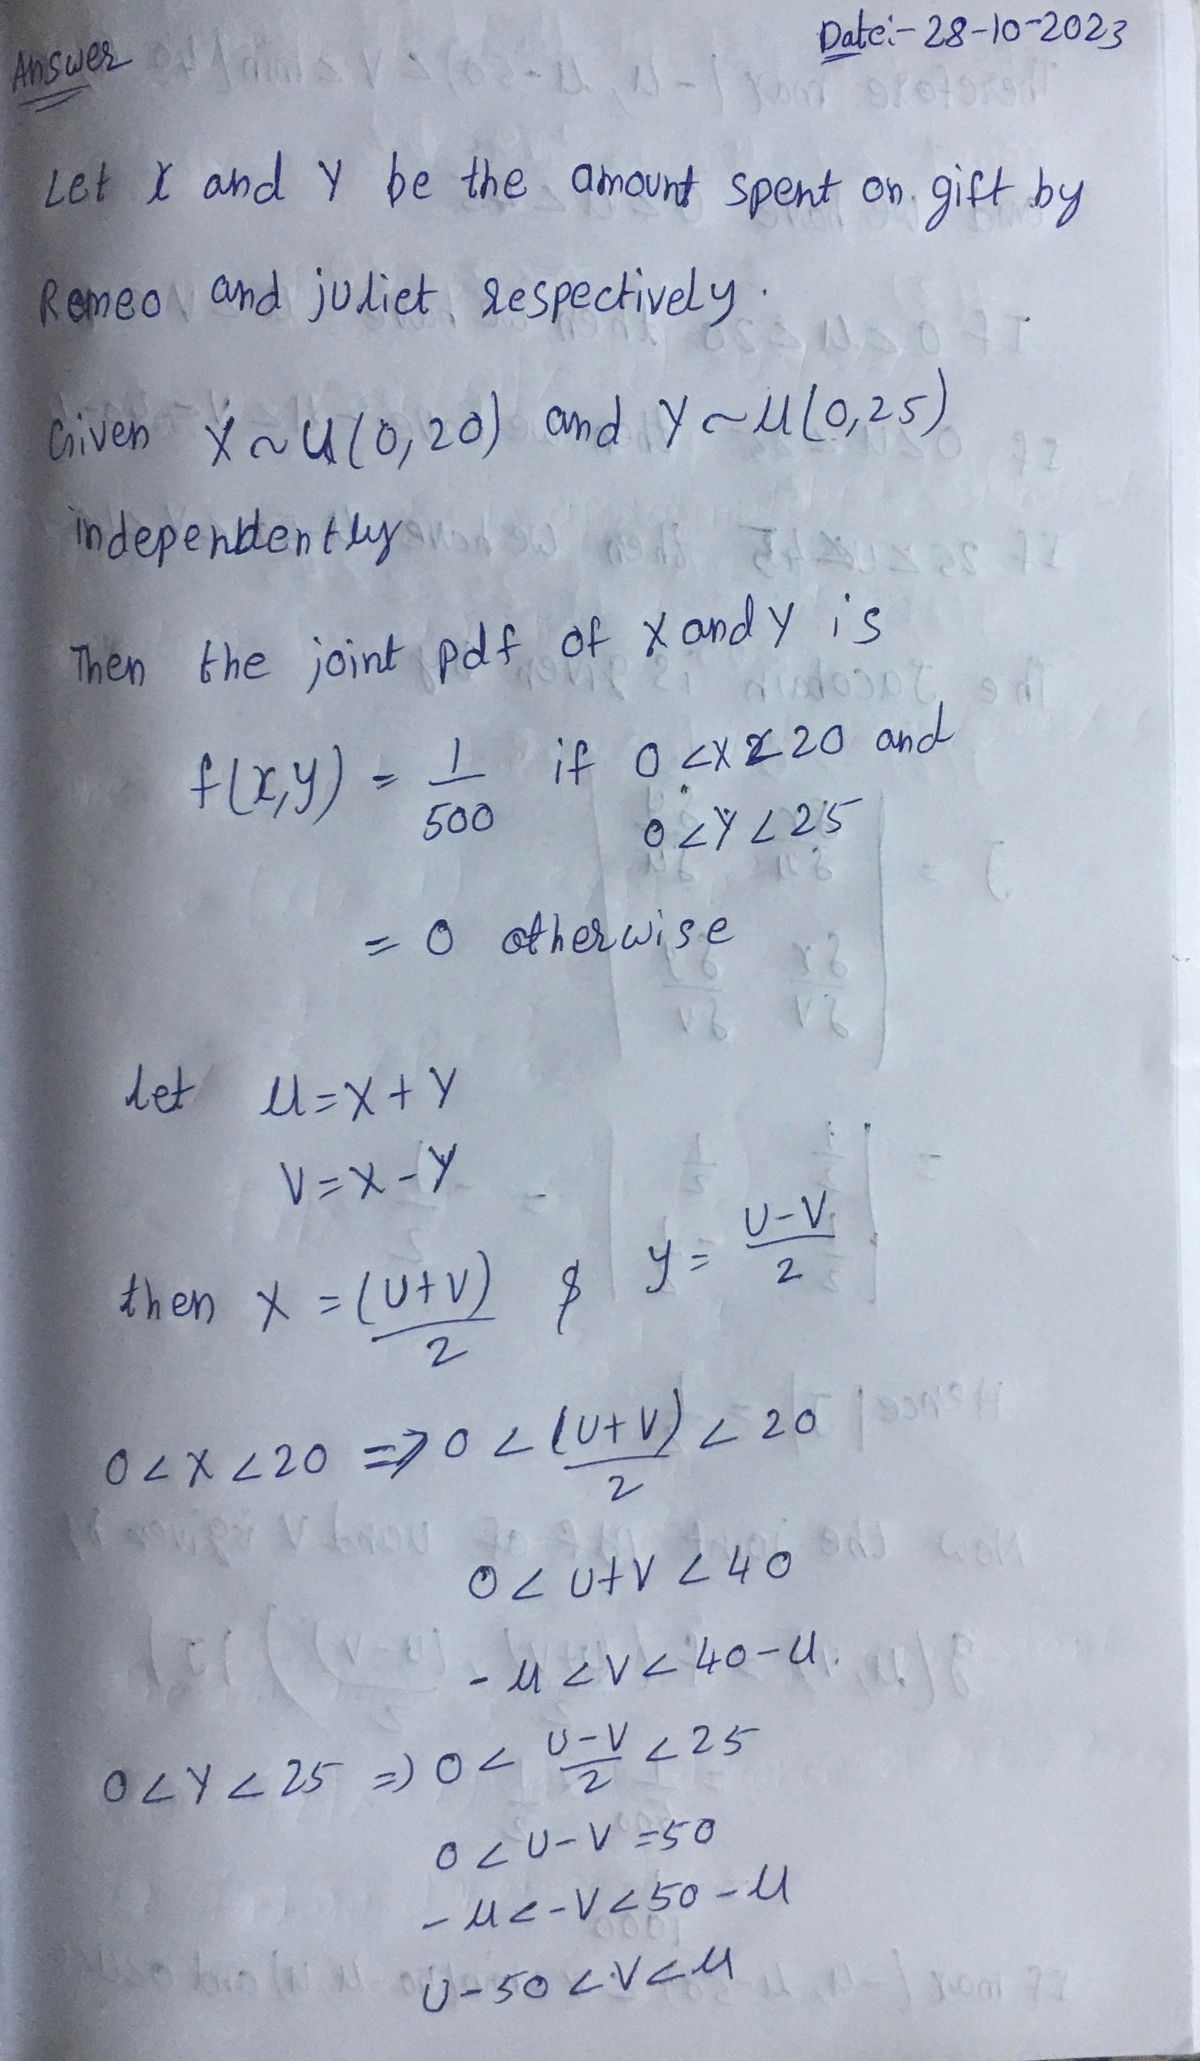 Date:- 28-10-2023
Answer
Let X and Y be the amount spent on gift by
Romeo and juliet respectively.
Given X ~ U(0,20) and Y ~ U(0,25)
independently
Then the joint pdf of X and Y is
f(x,y) = 1/500 if 0 < X < 20 and
0 < Y < 25
= 0 otherwise
let U = X + Y
V = X - Y
then X = (U+V)/2 & y = U-V/2
0 < X < 20 => 0 < (U+V)/2 < 20
0 < U+V < 40
-U < V < 40-U.
0 < Y < 25 => 0 < U-V/2 < 25
0 < U-V = 50
-U < -V < 50-U
U-50 < V < U